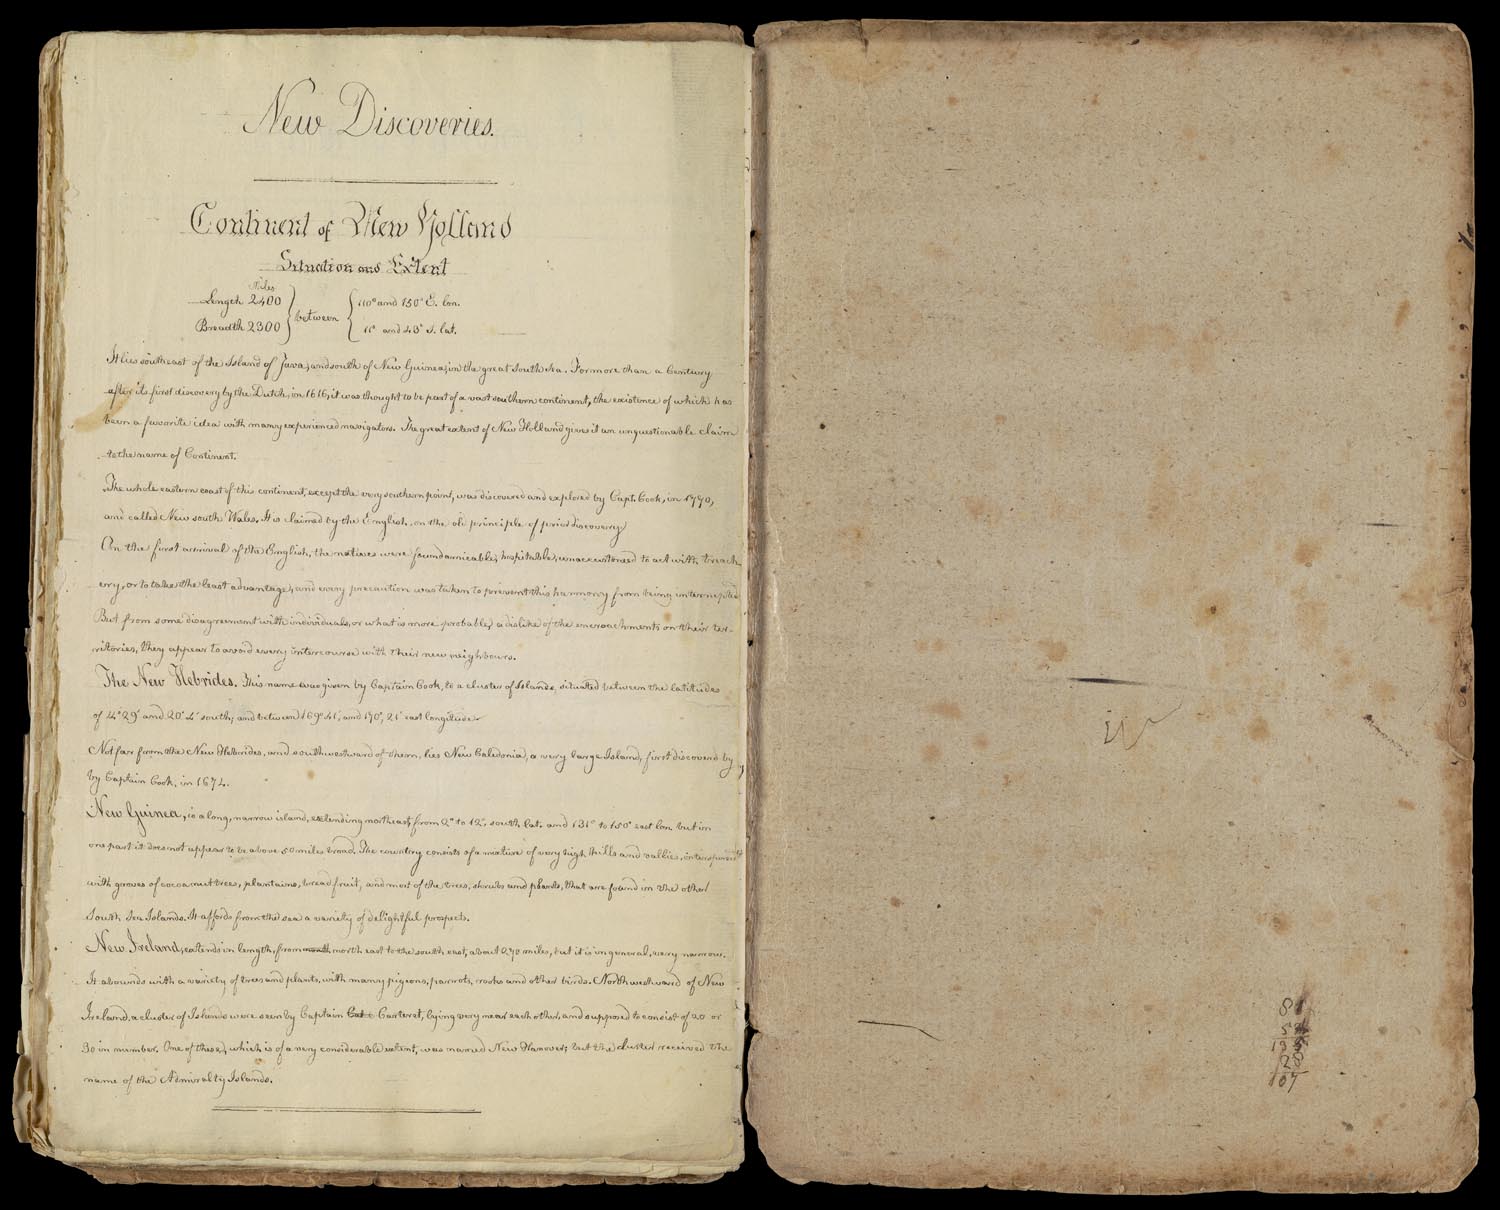 New Discoveries.
Continent of New Holland
Situation and Extent
Miles
Length 2400 } between { 110° and 150° E. lon.
Breadth 2300 } { 11° and 43° S. lat.
It lies southeast of the Island of Java, and south of New Guinea, in the great South Sea. For more than a Century
after its first discovery by the Dutch, in 1616, it was thought to be part of a vast southern continent, the existence of which has
been a favorite idea with many experienced navigators. The great extent of New Holland gives it an unquestionable claim
to the name of Continent.
The whole eastern coast of this continent, except the very southern point, was discovered and explored by Capt. Cook, in 1770,
and called New South Wales. It is claimed by the English on the old principle of prior discovery.
On the first arrival of the English, the natives were found amicable, hospitable, unaccustomed to act with treach
ery, or to take the least advantage; and every precaution was taken to prevent this harmony from being interrupted
But from some disagreement with individuals, or what is more probable, a dislike of the encroachments on their ter-
ritories, they appear to avoid every intercourse with their new neighbours.
The New Hebrides. This name was given by Captain Cook, to a cluster of Islands, situated between the latitudes
of 14° 29' and 20° 4' south; and between 169° 41', and 170°, 21' east longitude.
Not far from the New Hebrides, and southwestward of them, lies New Caledonia, a very large Island, first discovered by
by Captain Cook, in 1674.
New Guinea, is a long, narrow island, extending northeast, from 2° to 12°, south lat. and 131° to 150° east lon. but in
one part it does not appear to be above 50 miles broad. The country consists of a mixture of very high hills and vallies, interspersed
with groves of cocoa nut trees, plantains, bread fruit, and most of the trees, shrubs and plants, that are found in the other
South Sea Islands. It affords from the sea a variety of delightful prospects.
New Ireland, extends in length, from north north east to the south east, about 270 miles, but it is in general, very narrow.
It abounds with a variety of trees and plants, with many pigeons, parrots, rooks and other birds. Northwestward of New
Ireland, a cluster of Islands were seen by Captain Carteret, lying very near each other, and supposed to consist of 20 or
30 in number. One of these, which is of a very considerable extent, was named New Hanover; but the cluster received the
name of the Admiralty Islands.
28
107